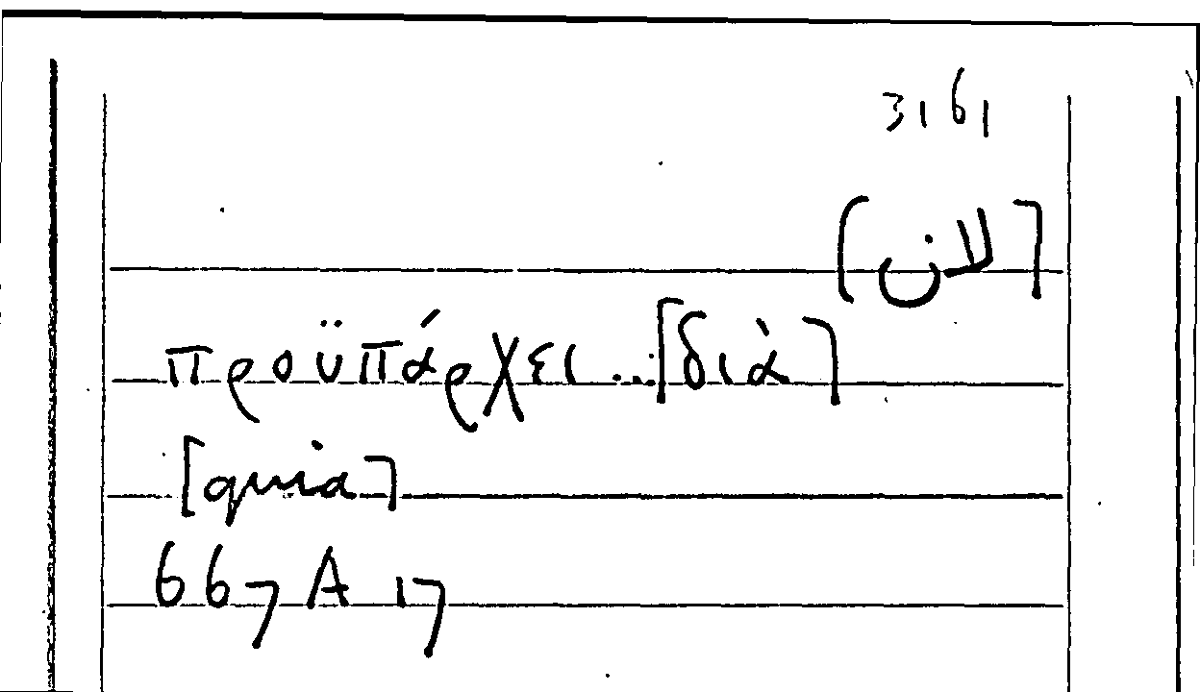 3161
[لان]
προϋπάρχει...[διὰ]
[quia]
667 A 17